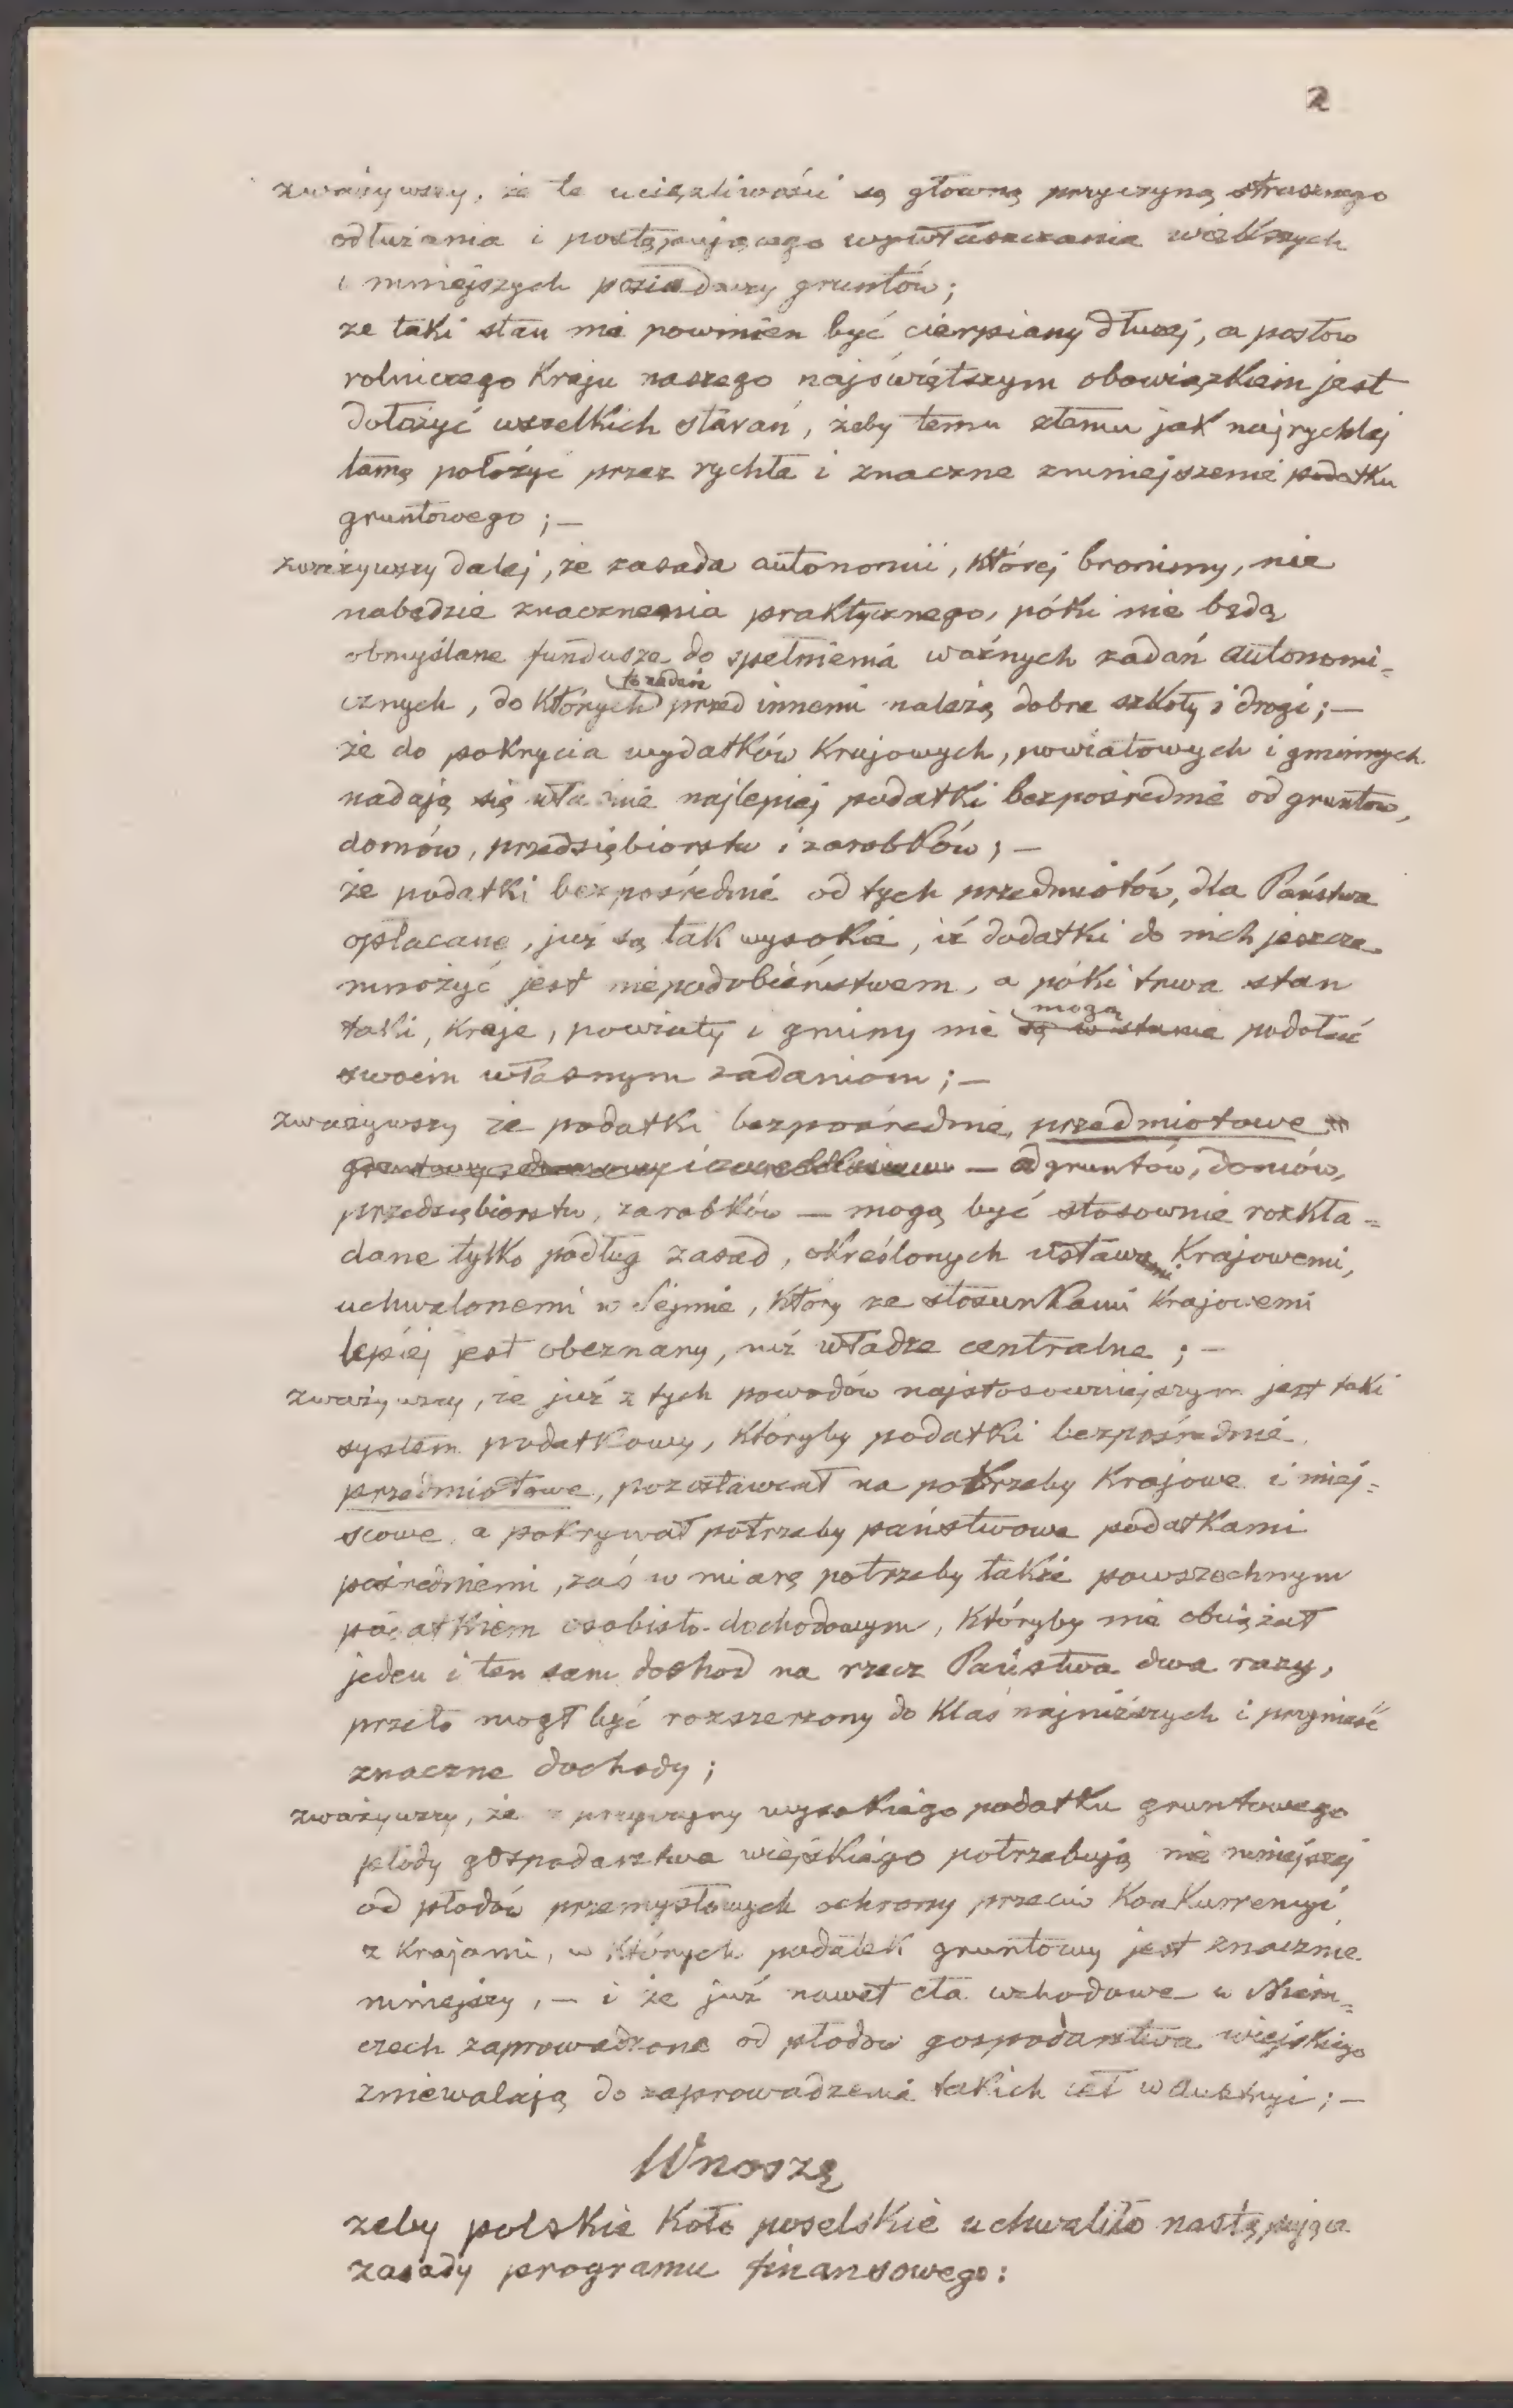 2
zważywszy, że te uciążliwości są główną przyczyną strasznego
odłużania i postępującego wywłaszczania większych
i mniejszych posiadaczy gruntów;
że taki stan nie powinien być cierpiany dłużej, a posłów
rolniczego Kraju naszego najświętszym obowiązkiem jest
dołożyć wszelkich starań, żeby temu złemu jak najrychlej
tamę położyć przez rychłe i znaczne zmniejszenie podatku
gruntowego; —
zważywszy dalej, że zasada autonomii, której bronimy, nie
nabędzie znaczenia praktycznego, póki nie będą
obmyślane fundusze do spełnienia ważnych zadań autonomi-
to zadań
cznych, do których przed innemi należą dobre szkoły i drogi; —
że do pokrycia wydatków Krajowych, powiatowych i gminnych
nadają się właśnie najlepiej podatki bezpośrednie od gruntów,
domów, przedsiębiorstw i zarobków; —
że podatki bezpośrednie od tych przedmiotów, dla Państwa
opłacane, już są tak wysokie, iż dodatki do nich jeszcze
mnożyć jest niepodobieństwem, a póki trwa stan
mogą
taki, Kraje, powiaty i gminy nie są w stanie podołać
swoim własnym zadaniom; —
zważywszy że podatki bezpośrednie, przedmiotowe —
— od gruntów, domów,
przedsiębiorstw, zarobków — mogą być stosownie rozkła-
dane tylko podług zasad, określonych ustawami Krajowemi,
uchwalonemi w Sejmie, który ze stosunkami Krajowemi
lepiej jest obeznany, niż władze centralne; —
zważywszy, że już z tych powodów najstosowniejszym jest taki
system podatkowy, któryby podatki bezpośrednie
przedmiotowe, pozostawiał na potrzeby Krajowe i miej-
scowe a pokrywał potrzeby państwowe podatkami
pośredniemi, zaś w miarę potrzeby także powszechnym
podatkiem osobisto-dochodowym, któryby nie obciążał
jeden i ten sam dochod na rzecz Państwa dwa razy,
przeto mogł być rozszerzony do Klas najniższych i przynieść
znaczne dochody;
zważywszy, że z przyczyny wysokiego podatku gruntowego
płody gospodarstwa wiejskiego potrzebują nie mniejszej
od płodów przemysłowych ochrony przeciw Konkurrencyi
z Krajami, w których podatek gruntowy jest znacznie
mniejszy, — i że już nawet cła wchodowe w Niem-
czech zaprowadzone od płodów gospodarstwa wiejskiego
zniewalają do zaprowadzenia takich ceł w Austryi; —
Wnoszę
żeby polskie Koło poselskie uchwaliło następujące
zasady programu finansowego: